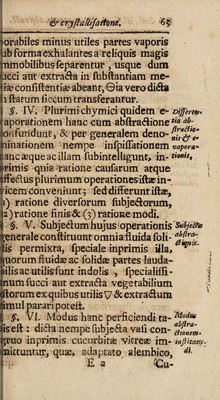 & crystallisatione. 65
orabiles minus utiles partes vaporis
ub forma exhalantes a reliquis magis
mmobilibus separentur, usque dum
ucci aut extracta in substantiam me-
iæ consistentiæ abeant, Sia vero dicta
n statum siccum transferantur.
§. IV. Plurimi chymici quidem e-
vaporationem hanc cum abstractione
onfundunt, & per generalem deno-
minationem nempe inspissationem
anc æque ac illam subintelligunt, in-
rimis quia ratione causarum atque
ffectus plurimum operationes istæ in-
vicem conveniunt; sed differunt istæ,
1) ratione diversorum subjectorum,
2) ratione finis & (3) ratione modi.
Differen-
tia ab-
stractio-
nis & e-
vapora-
tionis,
§. V. Subjectum hujus operationis
generale constituunt omnia fluida soli
lis permixta, speciale inprimis illa
quorum fluidæ ac solidæ partes lauda-
ilis ac utilis sunt indolis, specialissi-
num succi aut extracta vegetabilium
storum ex quibus utilis ▽ & extractum
imul parari potest.
Subjecta
abstra-
ctionis.
§. VI. Modus hanc perficiendi ta-
is est: dicta nempe subjecta vasi con-
gruo inprimis cucurbitæ vitreæ im-
mittuntur, quæ, adaptato alembico,
Modus
abstra-
ctionem
instituen-
di.
E 2 Cu-